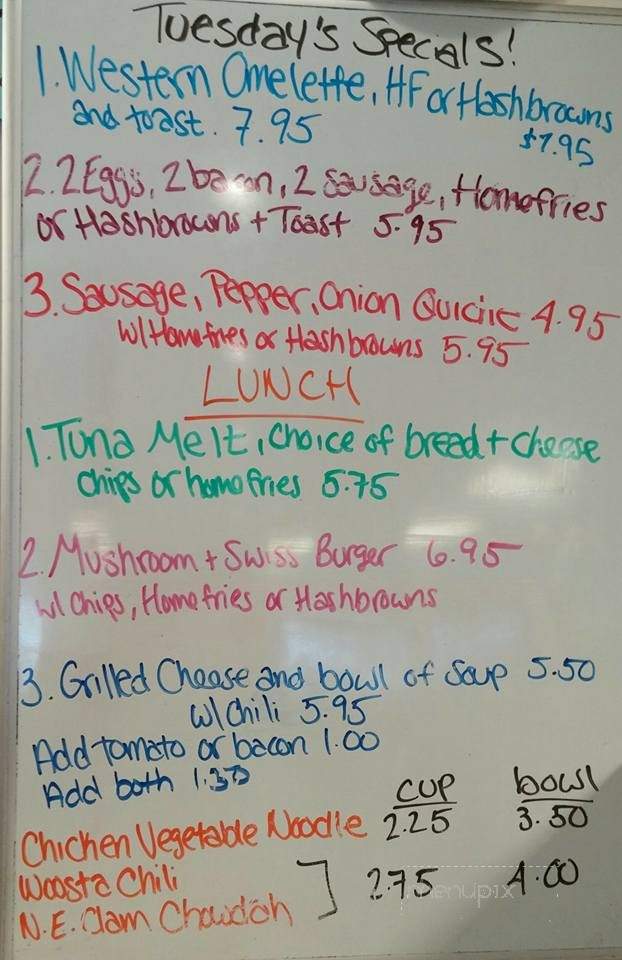 Tuesday's Specials!
1. Western Omelette, HF or Hashbrowns
and toast. 7.95
$7.95
2. 2 Eggs, 2 bacon, 2 sausage, Homefries
or Hashbrowns + Toast 5.95
3. Sausage, Pepper, Onion Quiche 4.95
w/ Homefries or Hashbrowns 5.95
LUNCH
1. Tuna Melt, choice of bread + cheese
chips or homefries 5.75
2. Mushroom + Swiss Burger 6.95
w/ Chips, Homefries or Hashbrowns
3. Grilled Cheese and bowl of Soup 5.50
w/ chili 5.95
Add tomato or bacon 1.00
Add both
cup bowl
Chicken Vegetable Noodle 2.25 3.50
Woosta Chili
2.75 4.00
N.E. Clam Chowdah
menupix